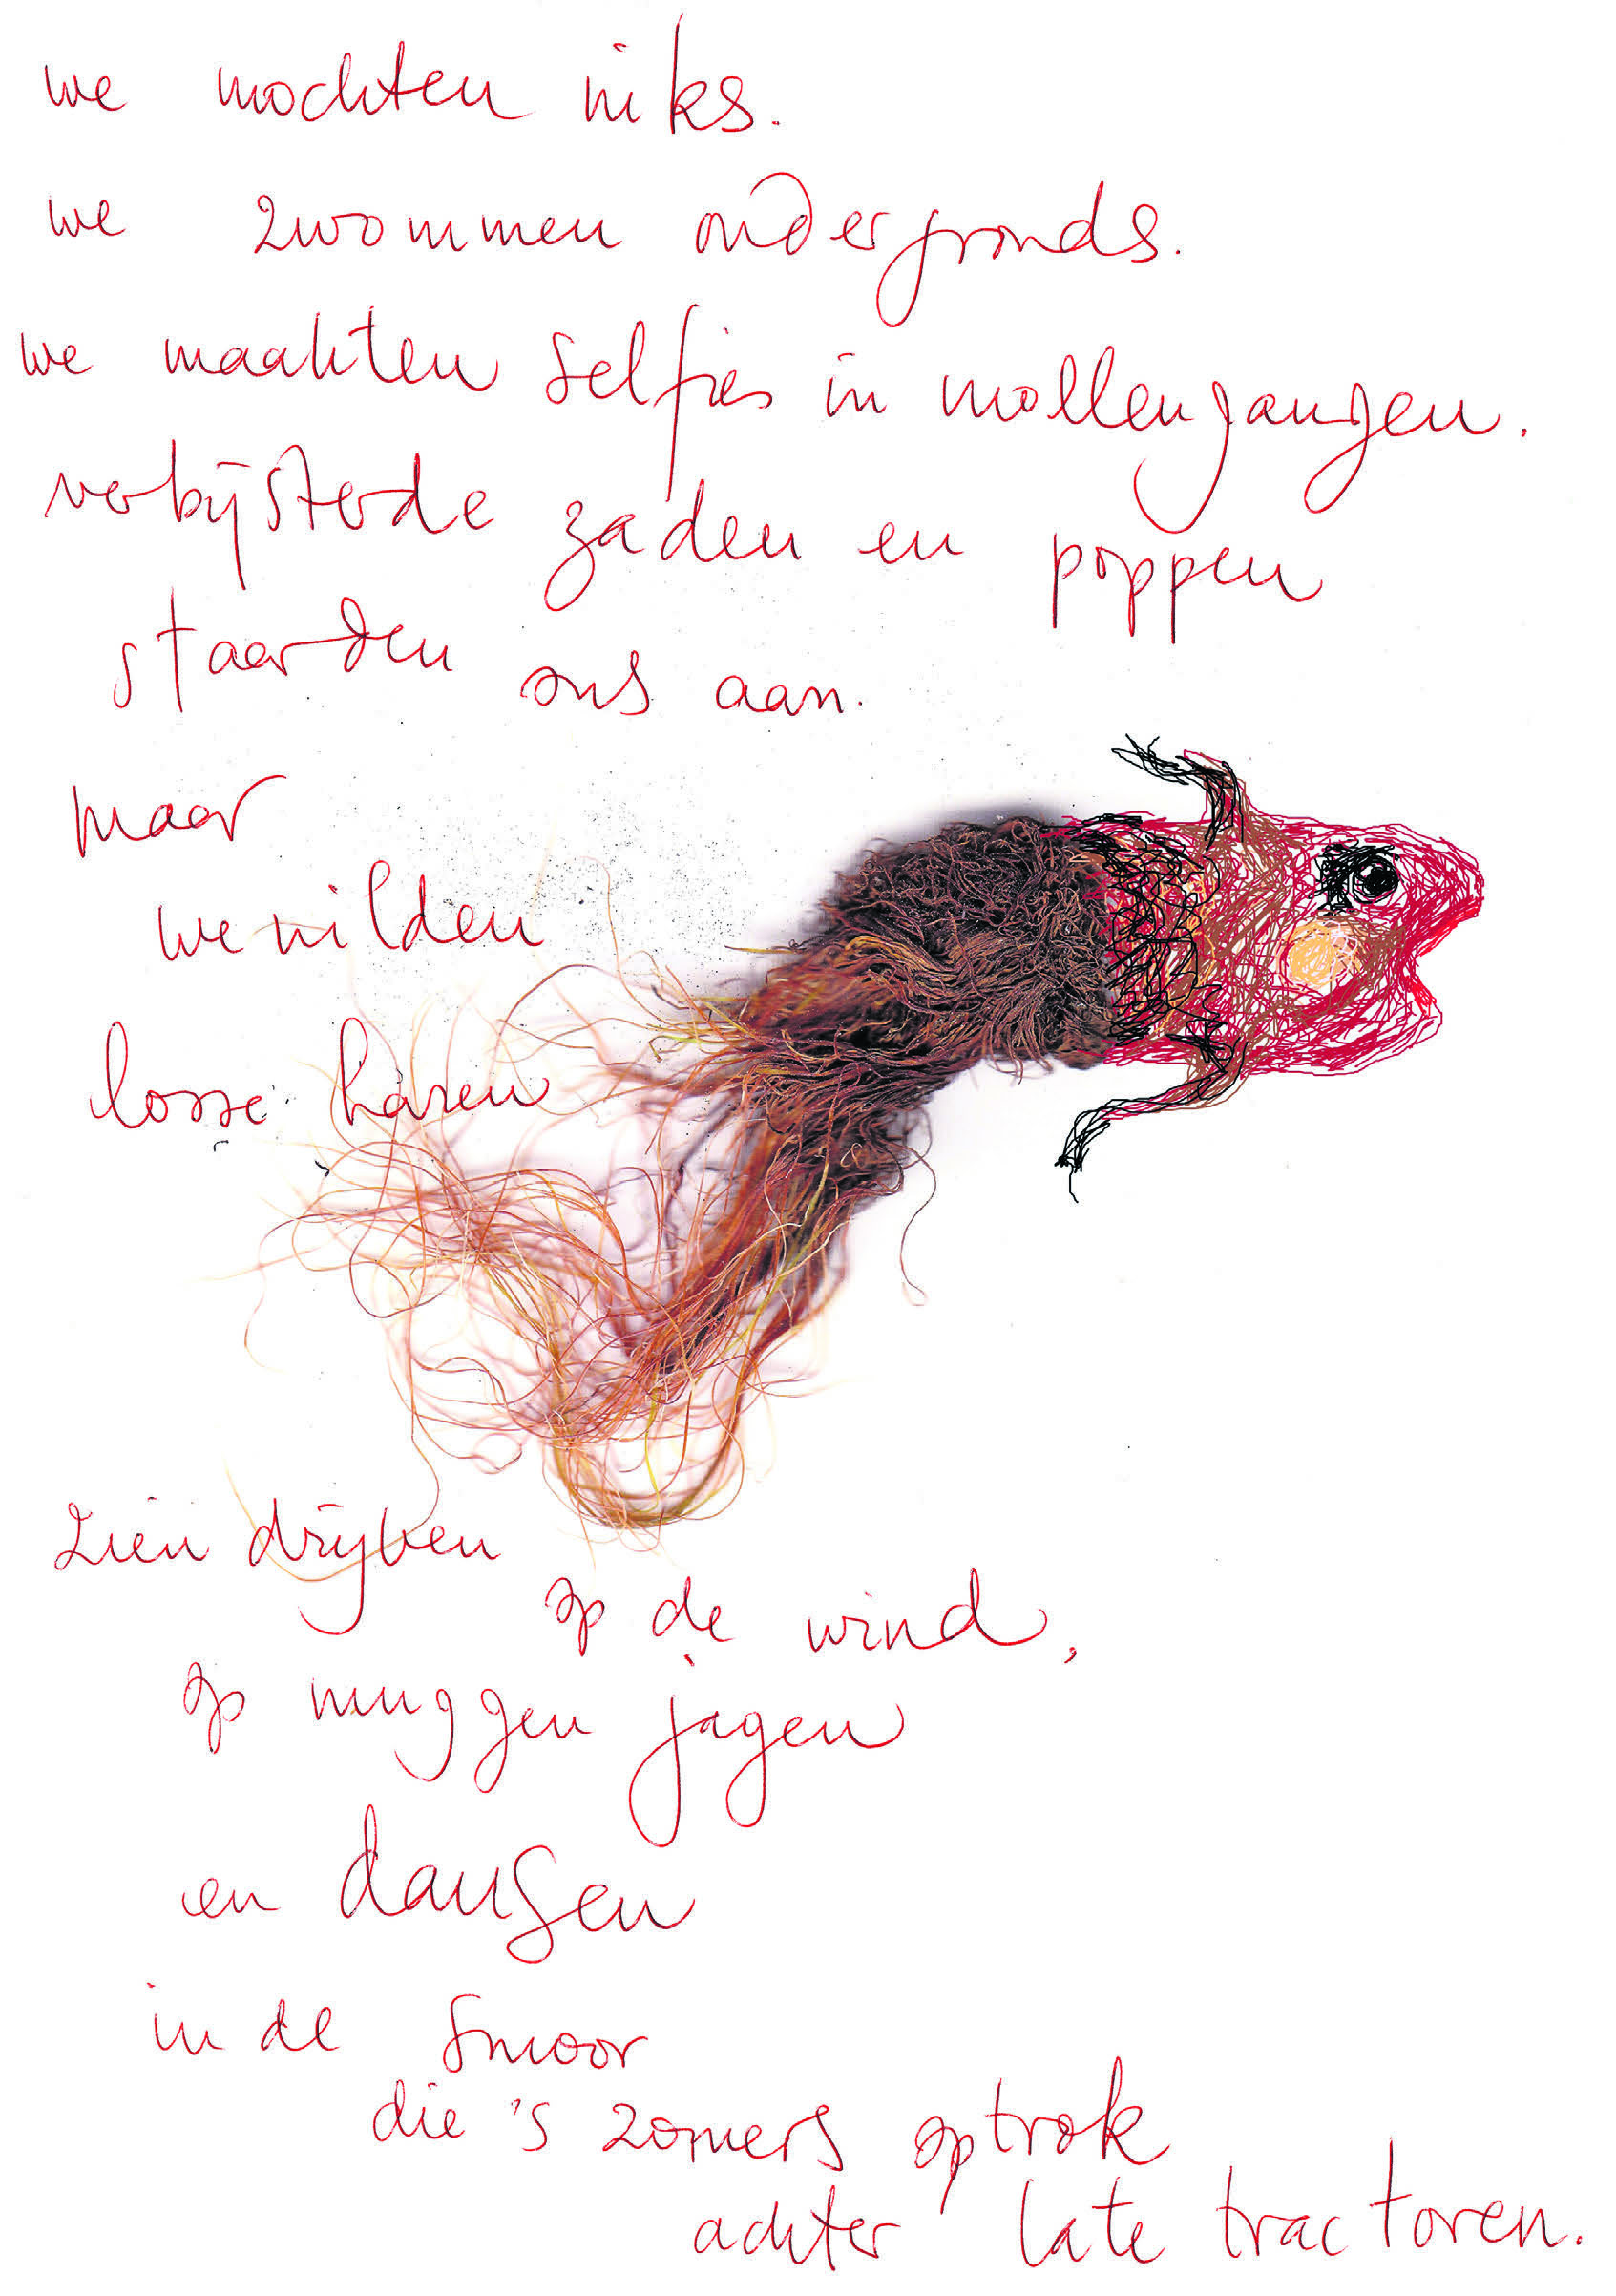 we mochten niks.
we zwommen ondergronds.
we maakten selfies in mollengangen.
verbijsterde zaden en poppen
staarden ons aan.
maar
we wilden
losse haren
zien drijven
op de wind,
op muggen jagen
en dansen
in de smoor
die 's zomers optrok
achter late tractoren.